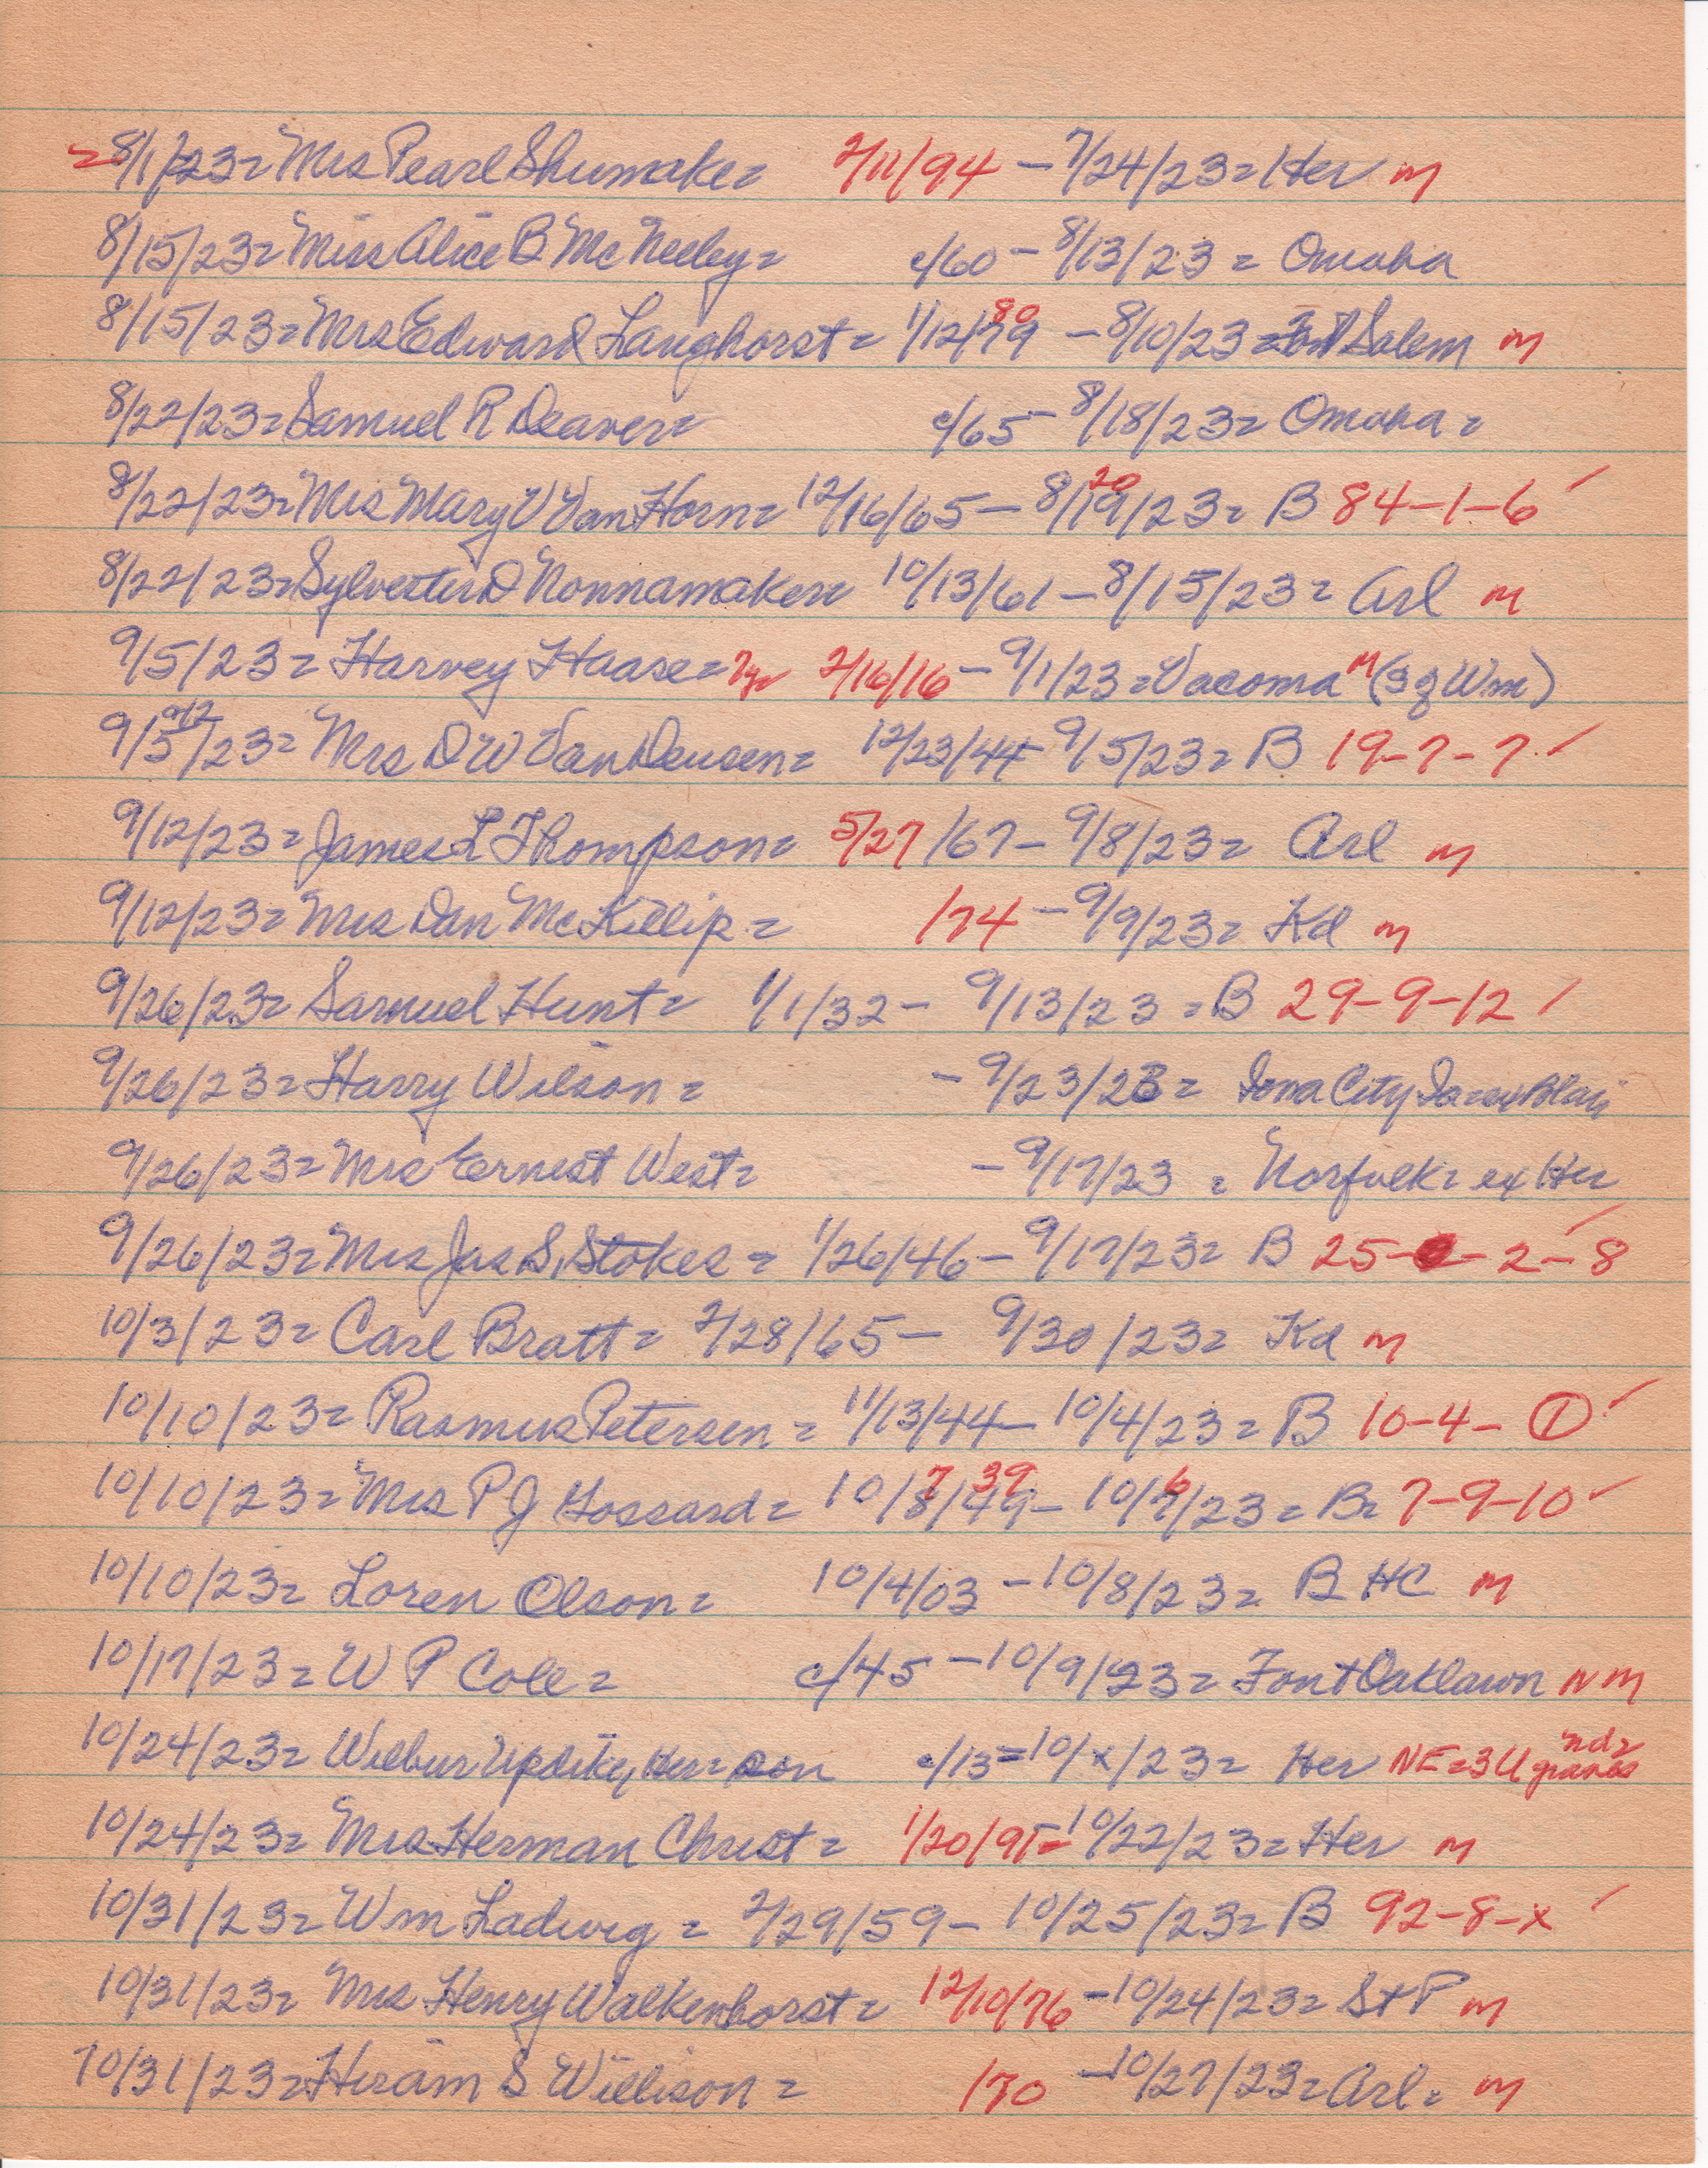 = 8/1/23 = Mrs Pearl Shumake = 2/11/94 - 7/24/23 = Her M
8/15/23 = Miss Alice B McNeeley = c/60 - 8/13/23 = Omaha
8/15/23 = Mrs Edward Langhorst = 1/12/79 80 - 8/10/23 = Font Salem M
8/22/23 = Samuel R Deaver = c/65 - 8/18/23 = Omaha =
8/22/23 = Mrs Mary V Van Horn = 12/16/65 - 8/19/23 20 = B 84-1-6 ✓
8/22/23 = Sylvester D Nonnamaker = 10/13/61 - 8/15/23 = Arl M
9/5/23 = Harvey Haase = 7y 2/16/16 - 9/1/23 = Vacoma M (3 g Wm)
9/5/23 9/12 = Mrs D W Van Deusen = 12/23/44 - 9/5/23 = B 19-7-7 ✓
9/12/23 = James L Thompson = 5/27/67 - 9/8/23 = Arl M
9/12/23 = Mrs Dan McKillip = /74 - 9/9/23 = Kd M
9/26/23 = Samuel Hunt = 1/1/32 - 9/13/23 = B 29-9-12 ✓
9/26/23 = Harry Wilson = - 9/23/23 = Iowa City Ia = ex Blair
9/26/23 = Mrs Ernest West = - 9/17/23 = Norfolk = ex Her
9/26/23 = Mrs Jas S. Stokes = 1/26/46 - 9/17/23 = B 25- -2-8 ✓
10/3/23 = Carl Bratt = 2/28/65 - 9/30/23 = Kd M
10/10/23 = Rasmus Petersen = 11/13/44 - 10/4/23 = B 10-4-① ✓
10/10/23 = Mrs P J Gossard = 10/8/49 7 39 - 10/7/23 6 = B = 7-9-10 ✓
10/10/23 = Loren Olson = 10/4/03 - 10/8/23 = B HC M
10/17/23 = W P Cole = c/45 - 10/9/23 = Font Oaklawn N M
10/24/23 = Wilbur Updike, Her = son c/13 = 10/x/23 = Her NE = 3 U graves nd =
10/24/23 = Mrs Herman Christ = 1/20/95 = 10/22/23 = Her M
10/31/23 = Wm Ladwig = 2/29/59 - 10/25/23 = B 92-8-x ✓
10/31/23 = Mrs Henry Walkenhorst = 12/10/76 - 10/24/23 = St P M
10/31/23 = Hiram S Willison = /70 - 10/27/23 = Arl = M